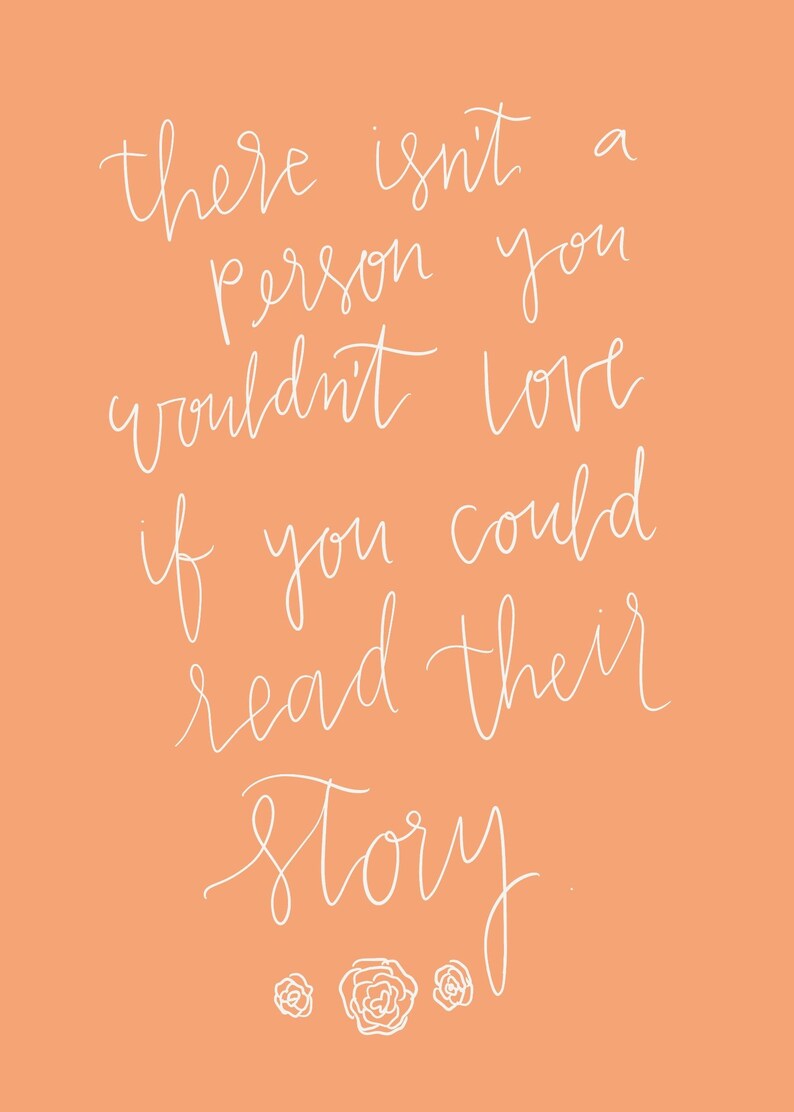 there isn't a
person you
wouldn't love
if you could
read their
story.